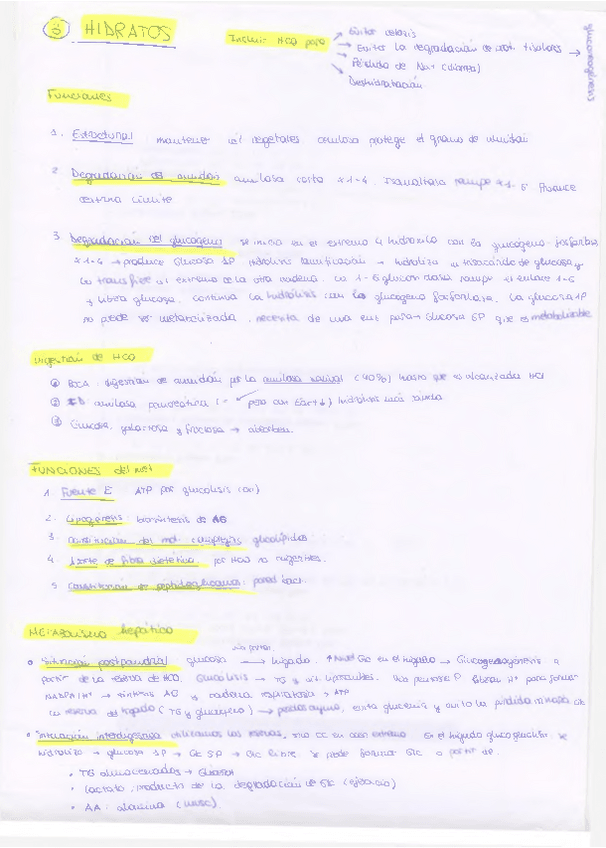 ③ HIDRATOS
Incluir HCO para → Evitar cetosis
→ Evitar la degradación de prot. tisulares → gluconeogénesis
→ Pérdida de Na+ (diarrea)
Deshidratación
Funciones
1. Estructural: mantener vegetales celulosa protege el grano de
2. Degradación del almidón amilosa corta α 1-4. Isomaltasa rompe α 1-6.
dextrina límite
3. Degradación del glucógeno se inicia en el extremo 4 hidroxilo con la glucógeno fosforilasa
α 1-4 → produce Glucosa 1P → hidroliza un trisacárido de glucosa y
lo transfiere al extremo de la otra cadena. La 1-6 glucosidasa rompe el enlace 1-6
y libera glucosa. Continua la hidrólisis con la glucógeno fosforilasa. La glucosa 1P
no puede ser metabolizada, necesita de una enz para → Glucosa 6P que es metabolizable
Digestión de HCO
① BOCA: digestión de almidón por la amilasa salival (40%) hasta que es alcanzada HCl
② amilasa pancreática (= pero con Eact ↓) hidrólisis más rápida
③ Glucosa, galactosa y fructosa → absorben.
FUNCIONES del
1. Fuente E ATP por glucolisis
2. Lipogénesis: biosíntesis de AG
3. Constitución de mol. complejas glucolípidos
4. Aporte de fibra dietética: por HCO no digeribles.
5. Constitución de peptidoglicanos: pared bact.
METABOLISMO hepático
vía portal
• Situación postprandial glucosa → hígado. ↑ Nivel Glc en el hígado → Glucogenogénesis a
partir de la reserva de HCO. Glucolisis → TG y Vía pentosa P liberar H+ para formar
NADPH H+ → síntesis AG y cadena respiratoria > ATP
La reserva del hígado (TG y glucógeno) → ayuno, evita glucemia y evita la pérdida
• Situación interdigestiva utilizamos las reservas, En el hígado glucógeno se
hidroliza → glucosa 1P → Glc 6P → Glc libre. Se puede formar Glc a partir de.
• TG almacenados → Glicerol
• Lactato: producto de la degradación de Glc (ejercicio)
• AA: alanina (musc)